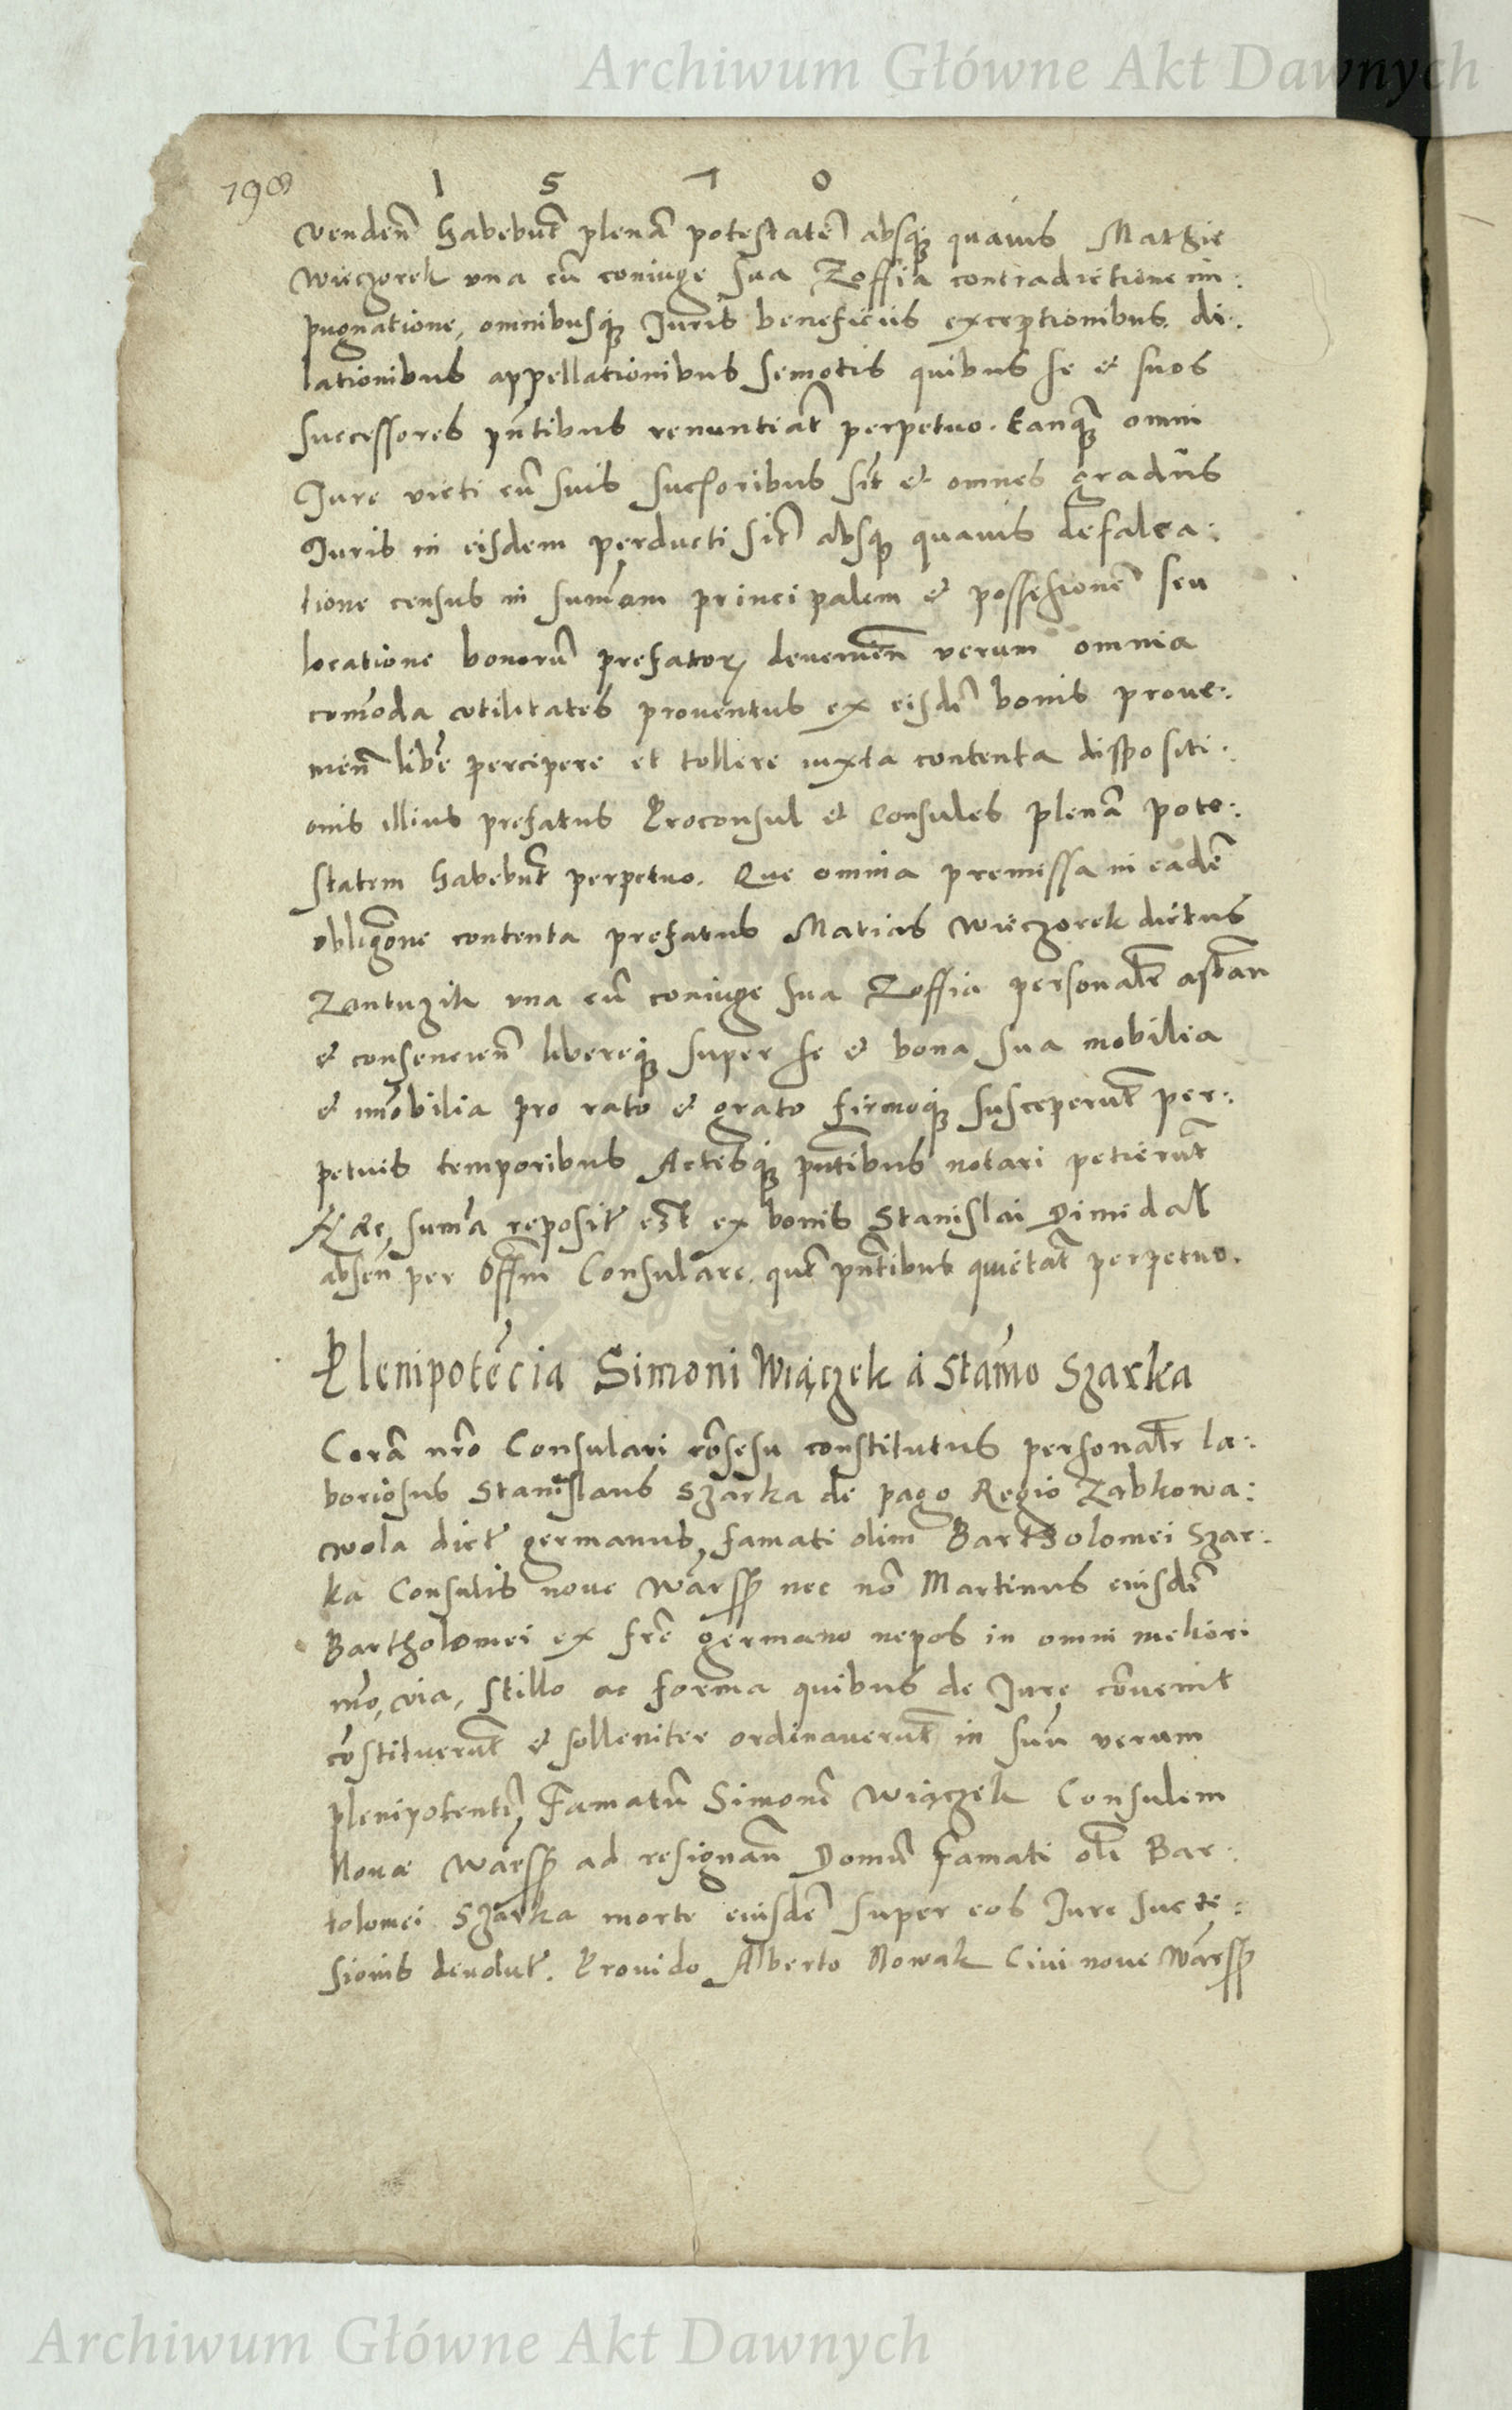 Archiwum Główne Akt Dawnych
198
1 5 7 0
venden̄ habebūt plenā potestatē absq; quauis Mathie
Wieczorek vna cū coniuge sua Zoffia contradictione im:
pugnatione, omnibusq; Juris beneficiis exceptionibus. di:
lationibus appellationibus semotis quibus se et suos
successores pn̄tibus renuntiāt perpetuo. Eanq; omni
Jure victi cū suis sucſoribus sīt et omnes gradus
Juris in eisdem perducti sīt absq; quauis defalca:
tione census in sum̄am principalem et possessionē seu
locatione bonorū prefator, deuenien̄ verum omnia
com̄oda vtilitates prouentus ex eisdē bonis proue:
nien̄ libē percipere et tollere iuxta contenta dispositi:
onis illius prefatus Proconsul et Consules plenā pote:
statem habebūt perpetuo. Que omnia premissa in eadē
obligōne contenta prefatus Matias Wieczorek dictus
vna cū coniuge sua Zoffia personalr̄ astān
et consencien̄ libereq; super se et bona sua mobilia
et im̄obilia pro rato et grato firmoq; susceperūt per:
petuis temporibus Actisq; pn̄tibus notari petierūt
Hæc sum̄a reposit̄ est ex bonis Stanislai Dimidal
absen̄ per Off̄m Consulare. quē pn̄tibus quietāt perpetuo.
Plenipotēcia Simoni Wiączek a Stan̄o Szarka
Corā nr̄o Consulari cōsesu constitutus personalr̄ la:
boriosus Stanislaus Szarka de pago Regio Zabkowa:
wola dict̄ germanus, famati olim Bartholomei Szar:
ka Consulis noue Warss̄ nec nō Martinus eiusdē
Bartholomei ex fr̄e germano nepos in omni meliori
mō, via, stillo ac forma quibus de Jure cōuenit
cōstituerūt et solleniter ordinauerūt in suū verum
plenipotentē, Famatū Simonē Wiączek Consulem
Nouæ Warss̄ ad resignan̄ Domū famati oli Bar:
tolomei Szarka morte eiusdē super eos Jure succe:
sionis deuolut̄. Prouido Alberto Nowak Ciui noue Warss̄
Archiwum Główne Akt Dawnych